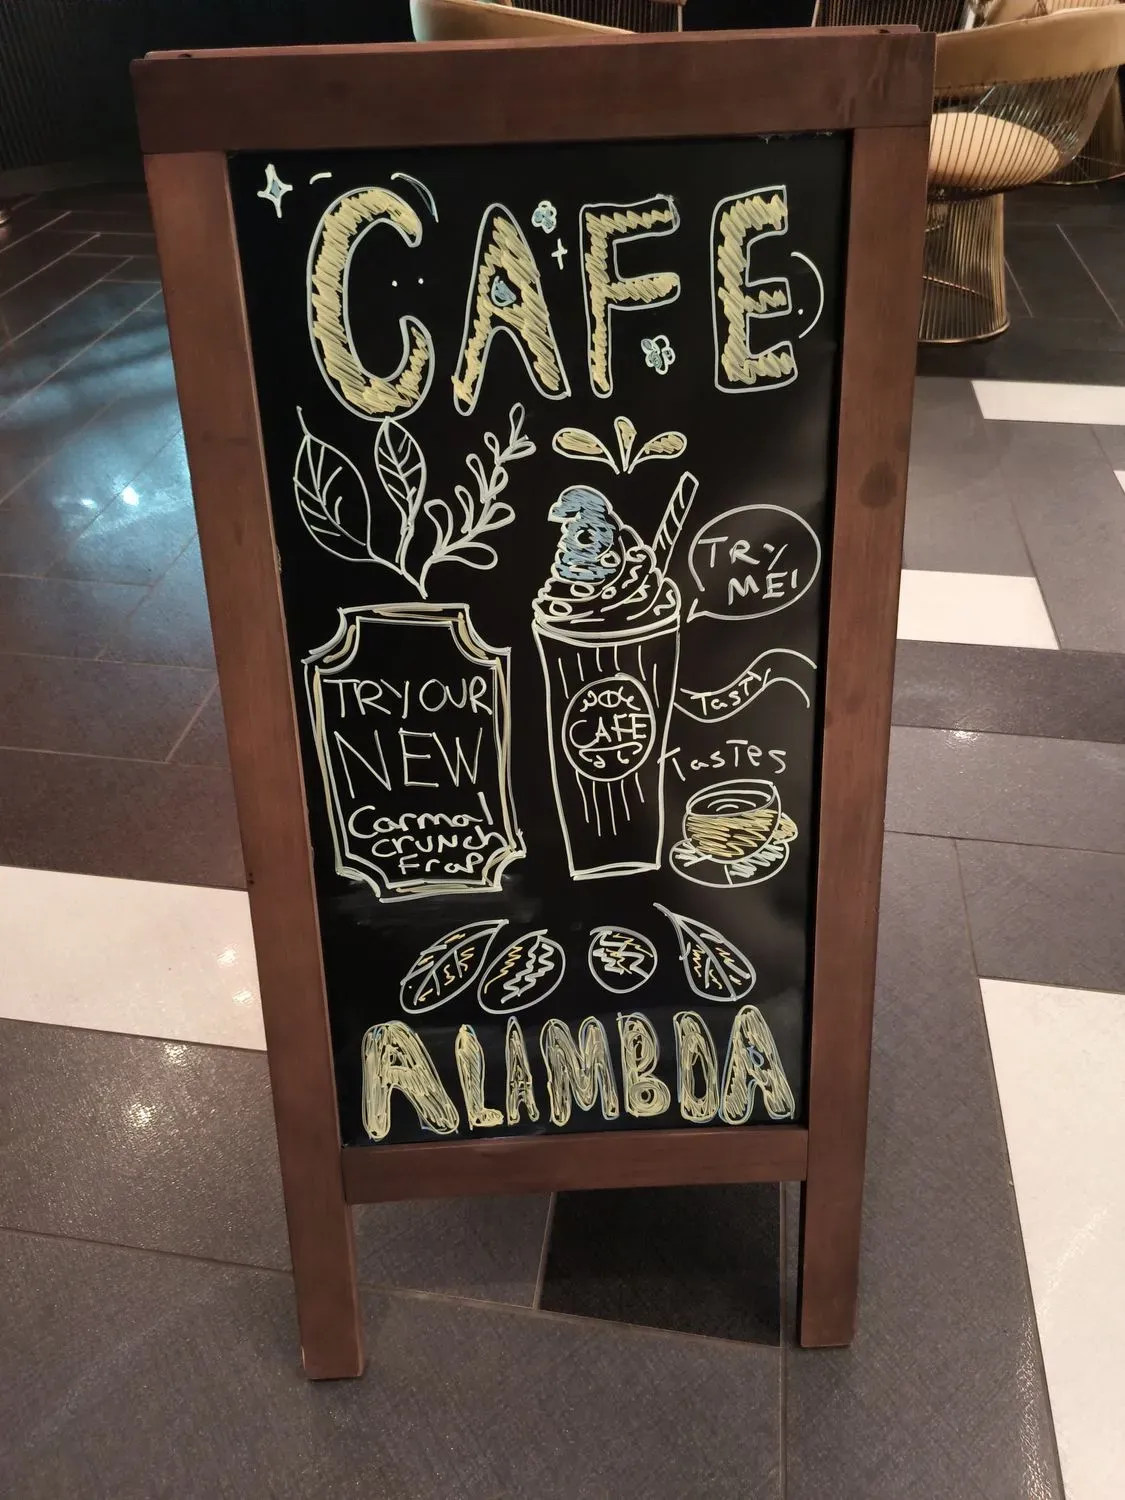 CAFE
TRY
ME!
TRY OUR
NEW
Carmal
crunch
Frap
CAFE
Tasty
Tastes
ALAMBDA